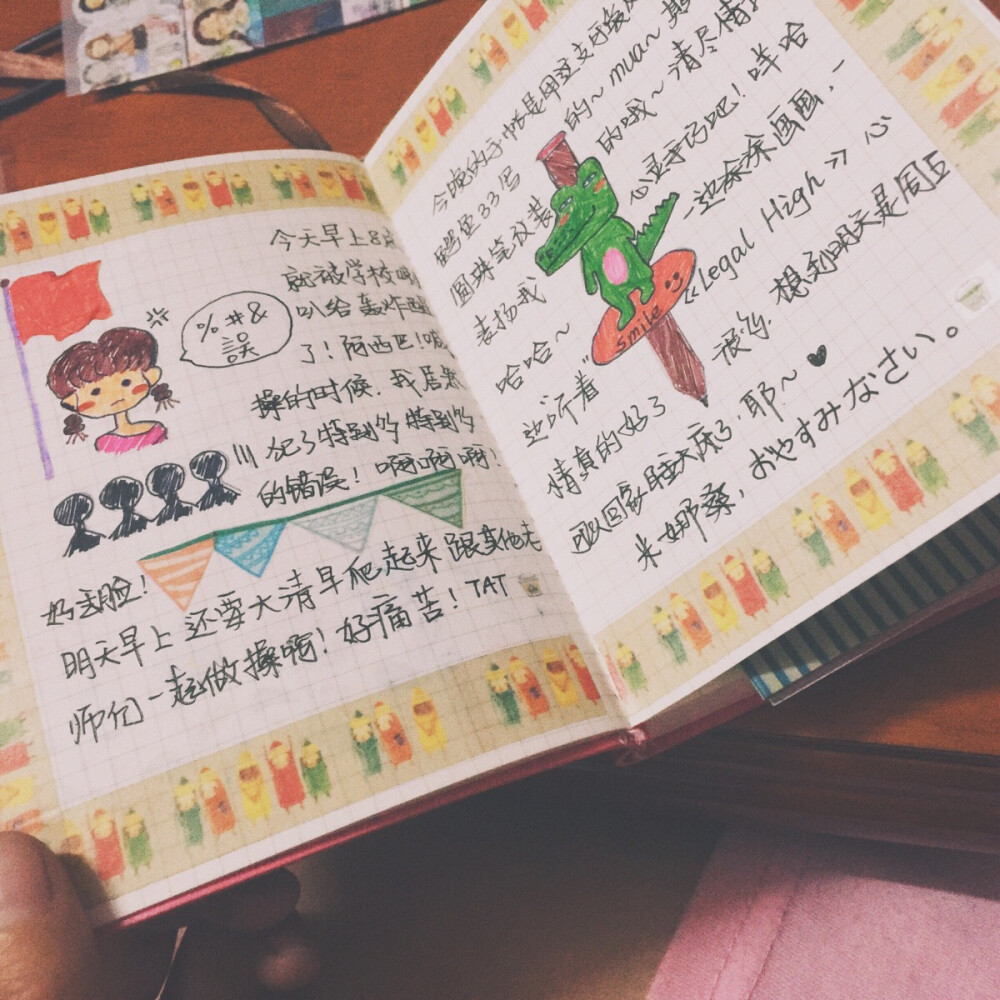 今天早上8点
就被学校喇
叭给轰炸醒
了！阿西巴！做
操的时候，我居然
犯了特别多特别多
的错误！啊啊啊！
好丢脸！
明天早上还要大清早爬起来跟其他老
师们一起做操啊！好痛苦！TAT
%#&
誤
今晚的手帐是用这支
33写
的~mua~
圆珠笔改装
的哦~请尽情
表扬我
心灵手巧吧！咩哈
哈哈~
一边涂涂画画，一
边听着
《Legal High》心
情真的好了
很多，想到明天是周五
可以回家睡大床了，耶~♥
米娜桑，おやすみなさい。
smile